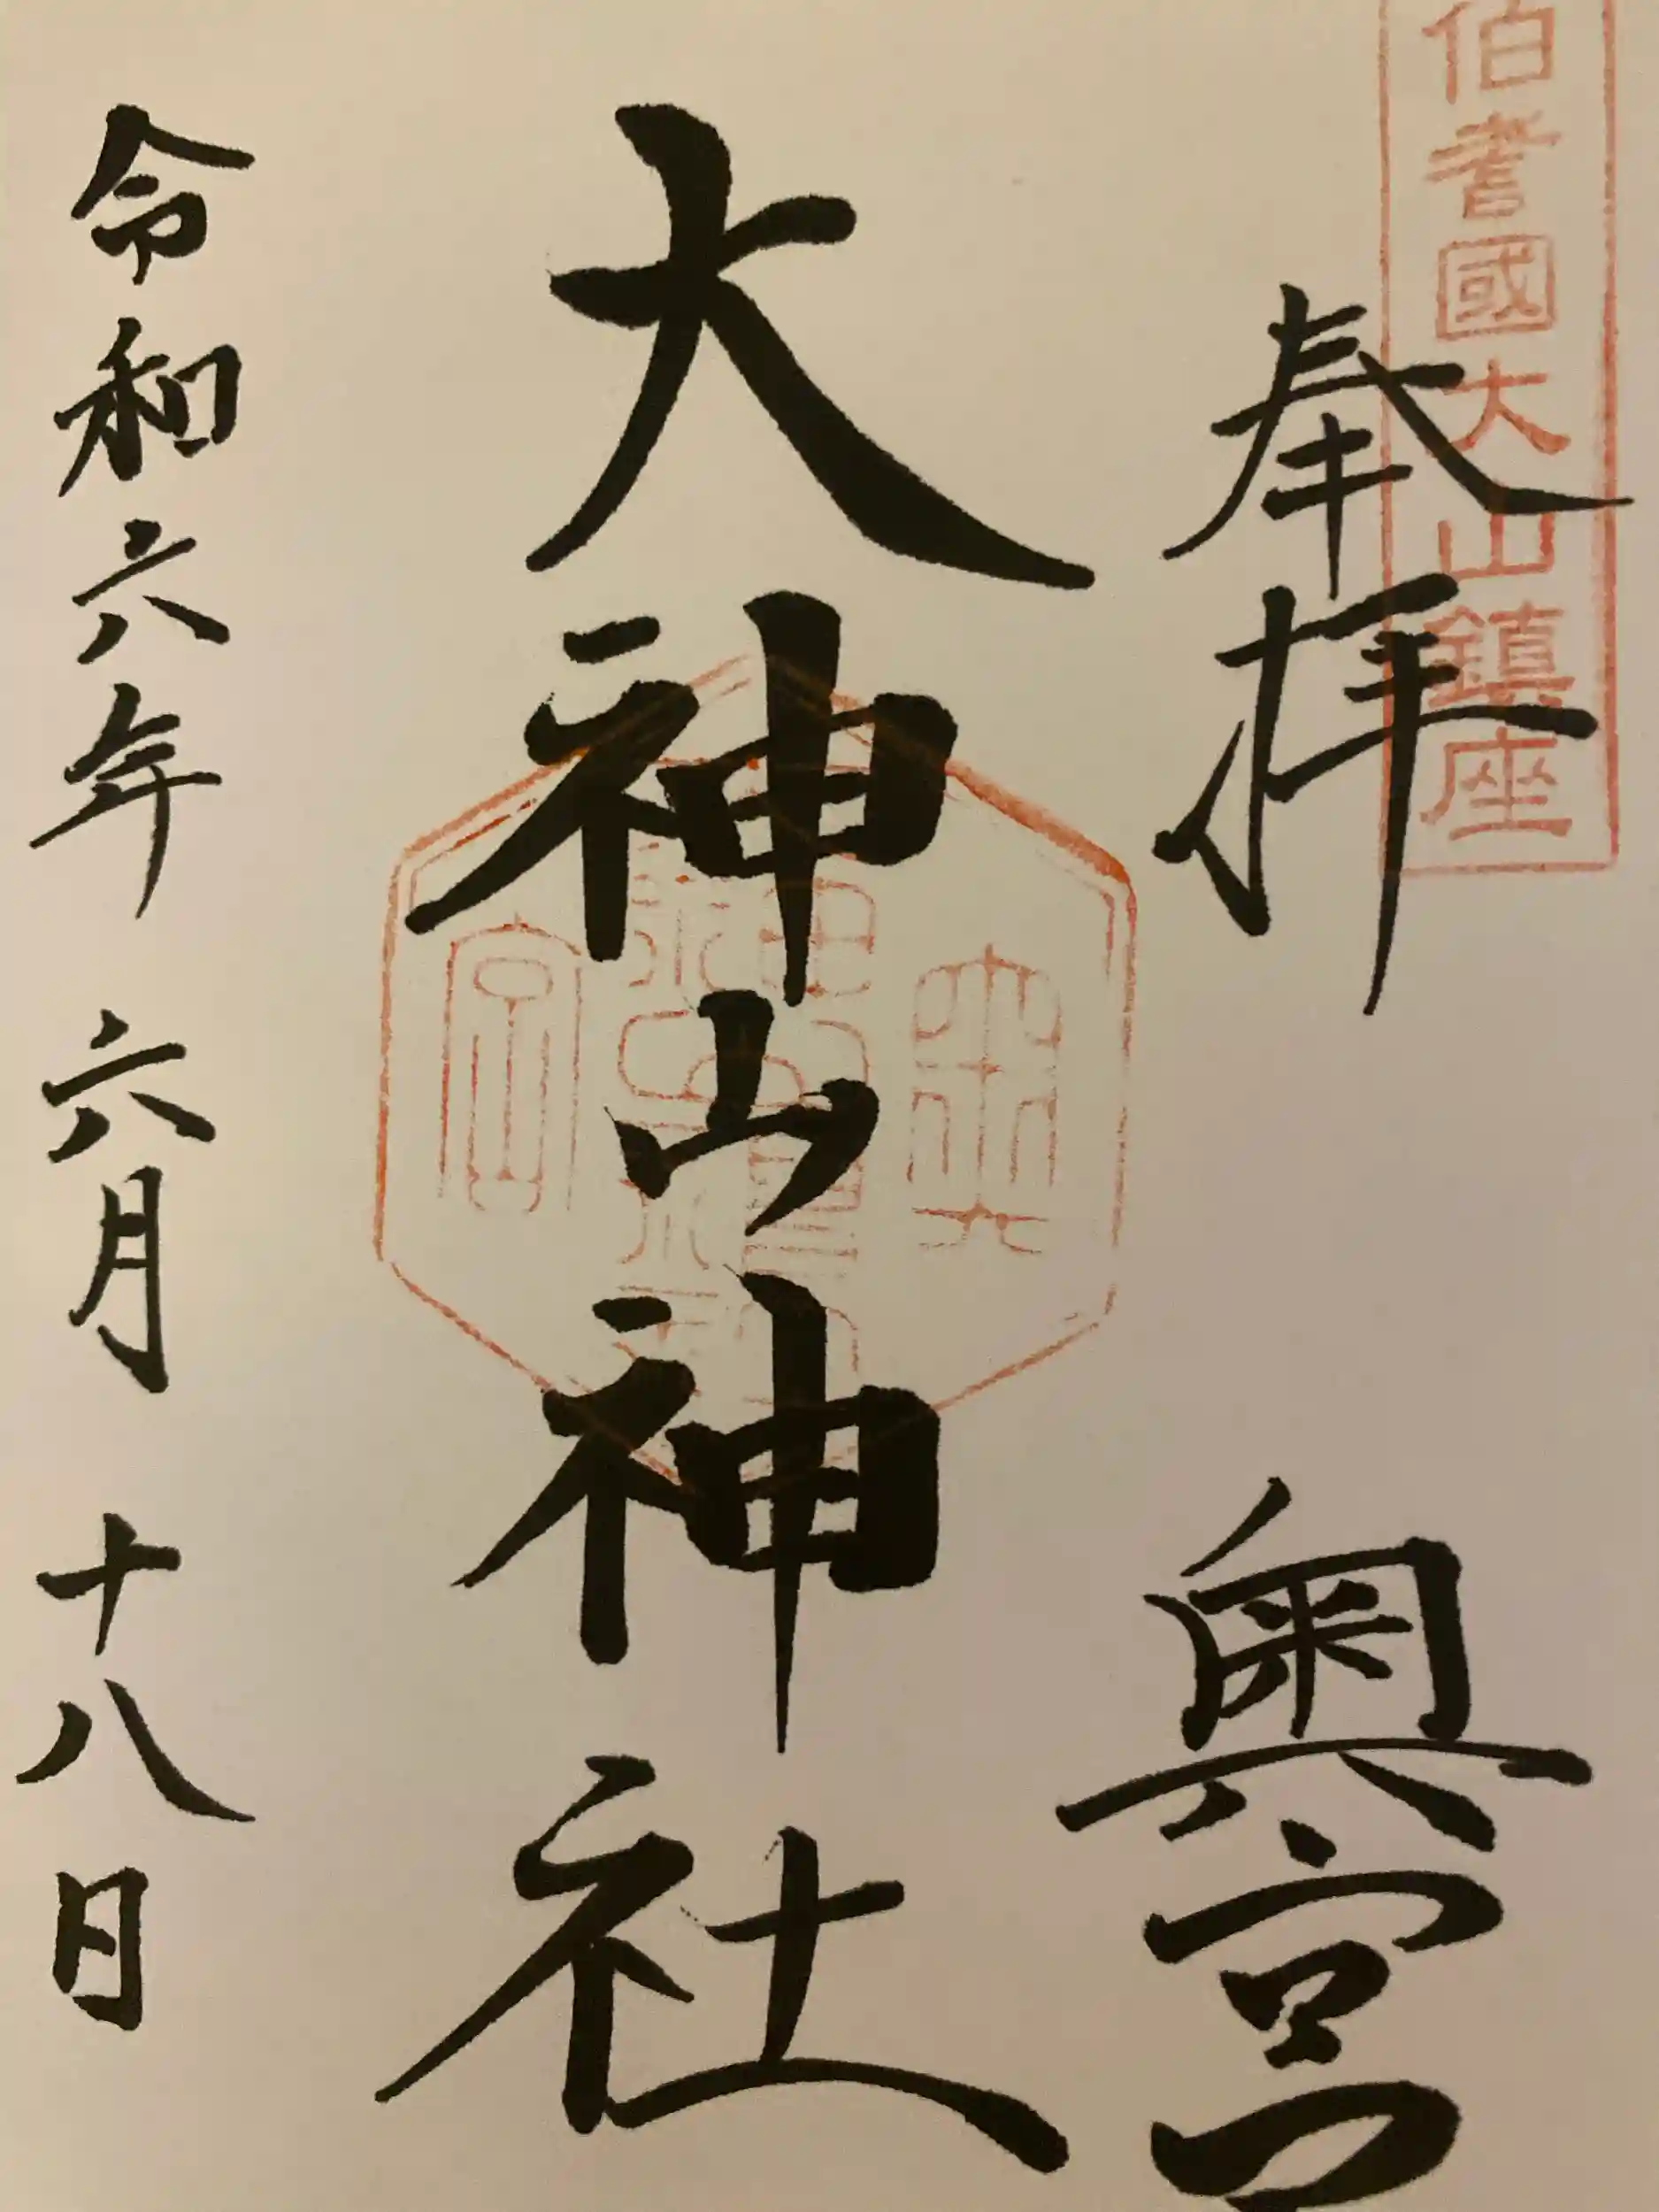 伯耆國大山鎮座
奉拝 奥宮
大神山神社
令和六年 六月 十八日